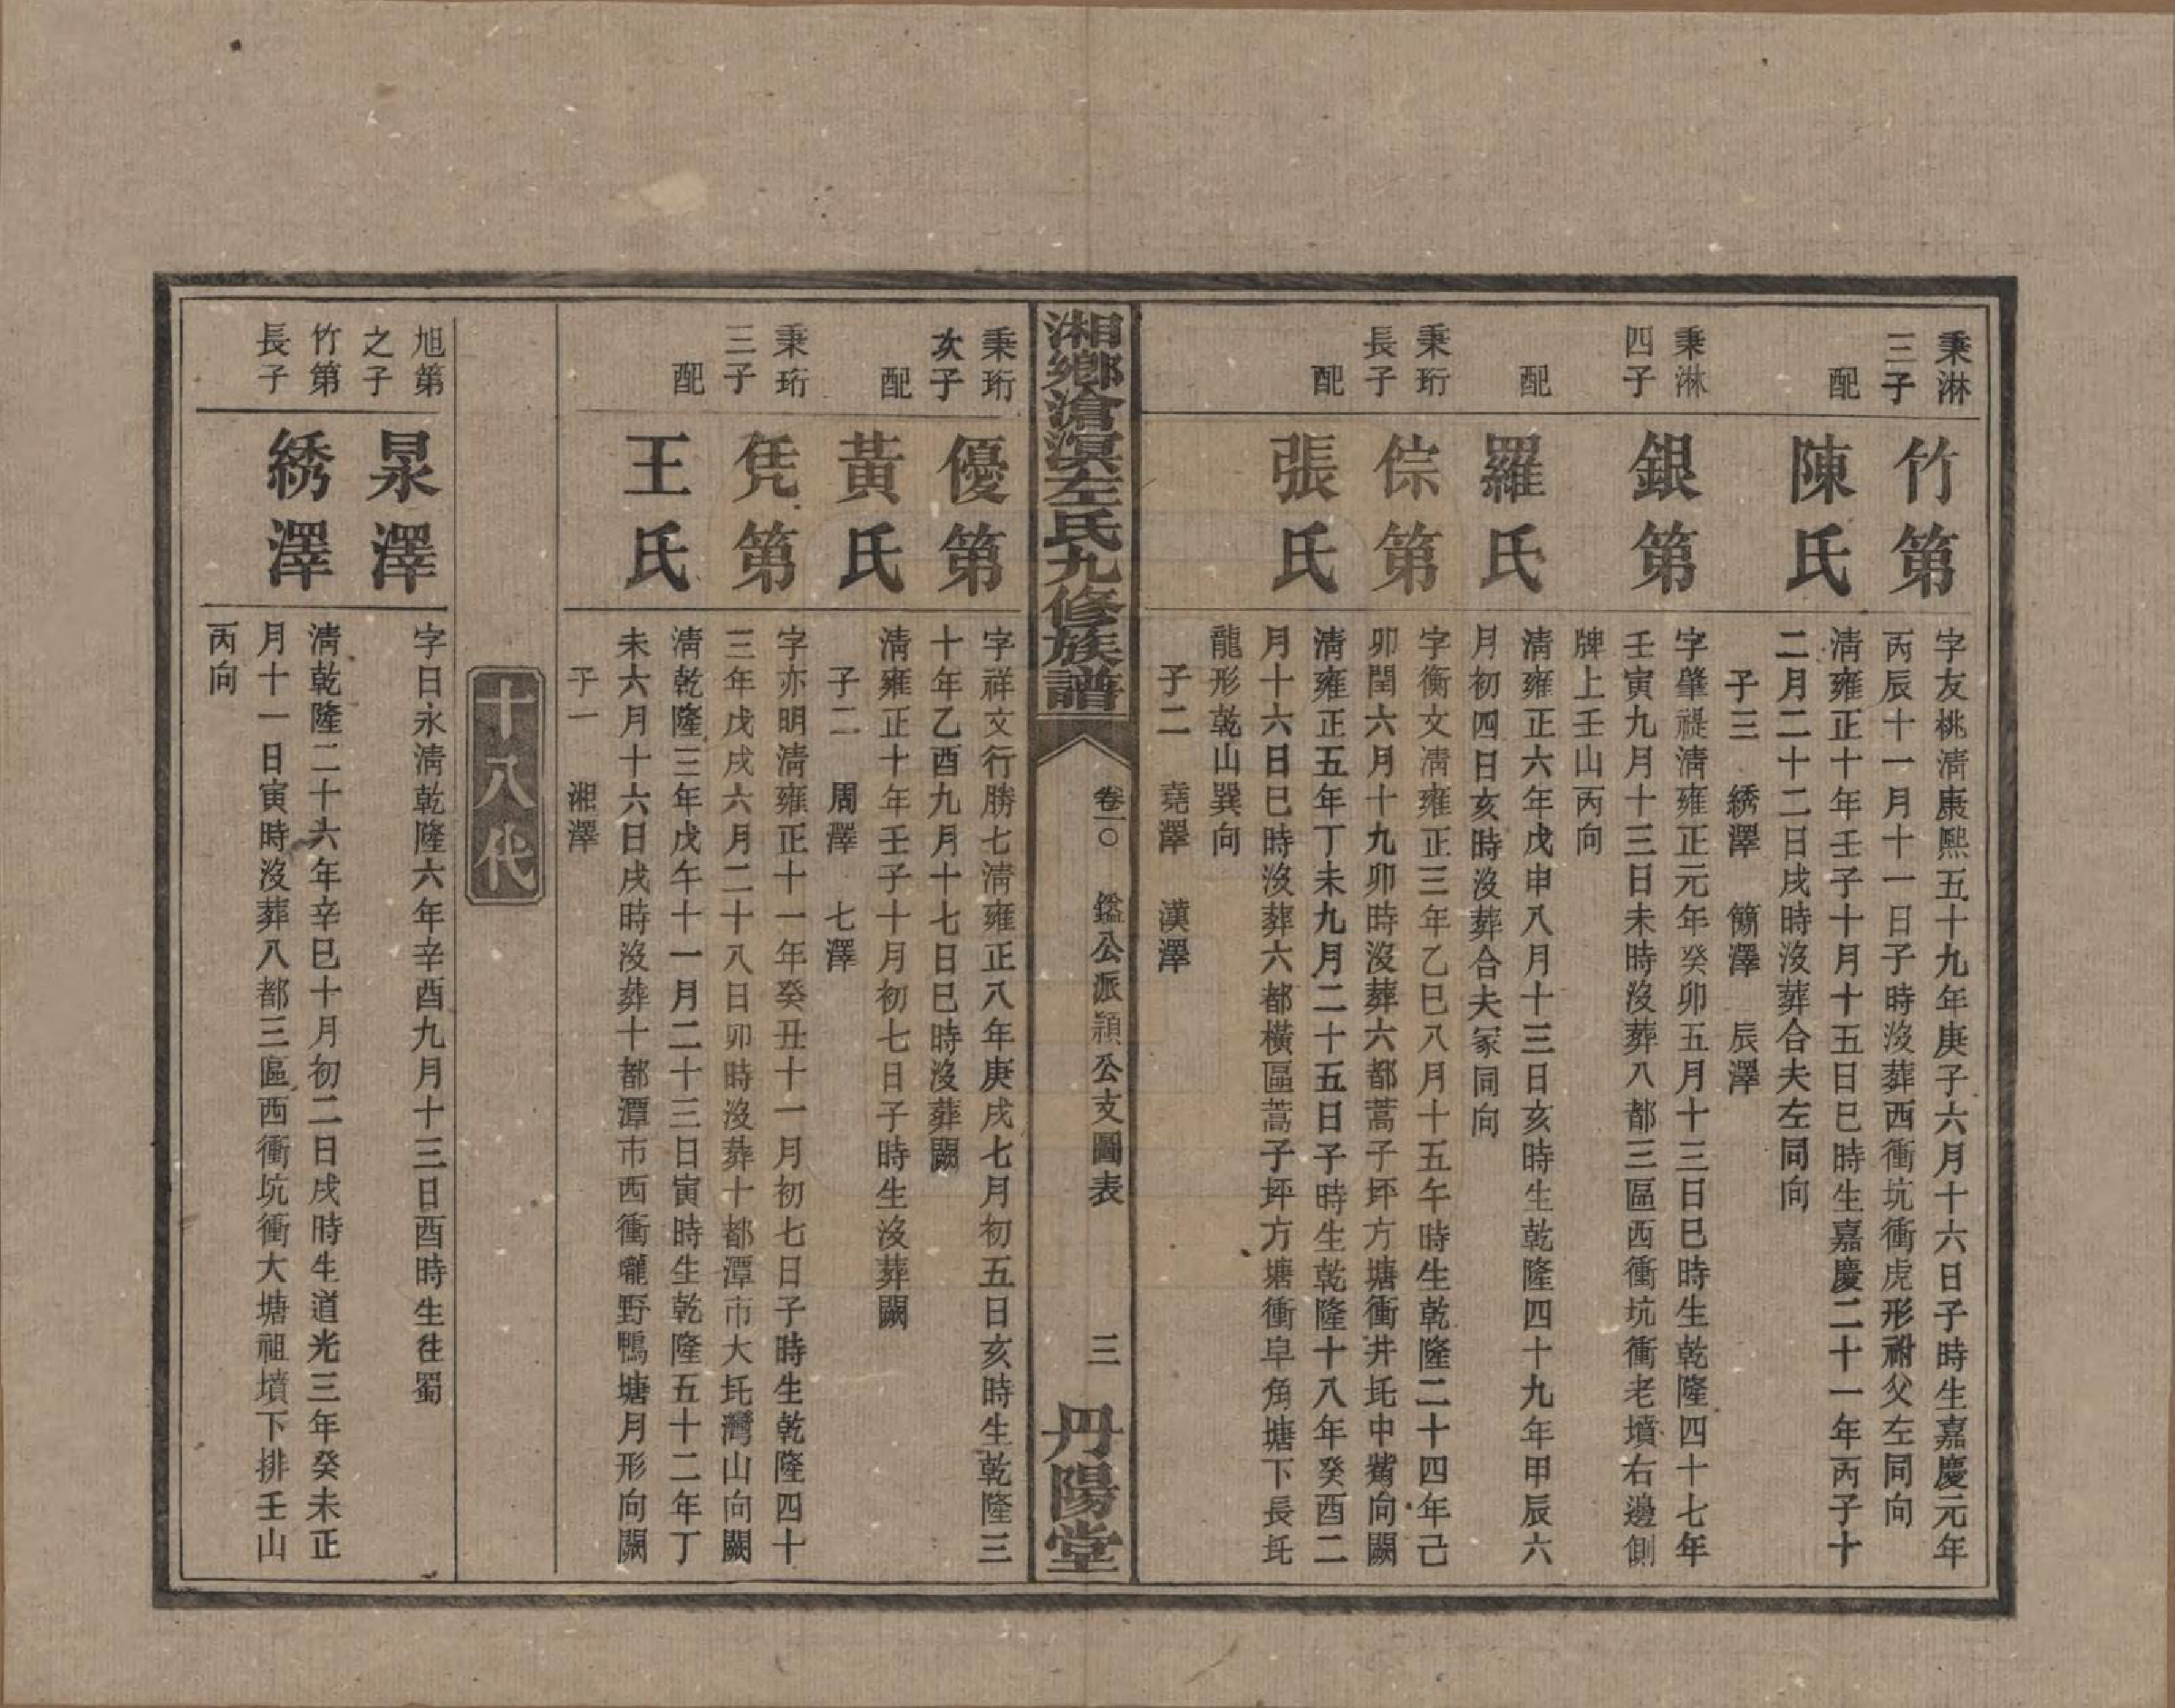 秉淋
三子
竹第
字友桃淸康熙五十九年庚子六月十六日子時生嘉慶元年
丙辰十一月十一日子時沒葬西衝坑衝虎形祔父左同向
配
陳氏
淸雍正十年壬子十月十五日巳時生嘉慶二十一年丙子十
二月二十二日戌時沒葬合夫左同向
子三 綉澤 簡澤 辰澤
秉淋
四子
銀第
字肇禔淸雍正元年癸卯五月十三日巳時生乾隆四十七年
壬寅九月十三日未時沒葬八都三區西衝坑衝老墳右邊側
牌上壬山丙向
配
羅氏
淸雍正六年戊申八月十三日亥時生乾隆四十九年甲辰六
月初四日亥時沒葬合夫冢同向
秉珩
長子
倧第
字衡文淸雍正三年乙巳八月十五午時生乾隆二十四年己
卯閏六月十九卯時沒葬六都蒿子坪方塘衝井坵中嘴向闕
配
張氏
淸雍正五年丁未九月二十五日子時生乾隆十八年癸酉二
月十六日巳時沒葬六都橫區蒿子坪方塘衝皁角塘下長坵
龍形乾山巽向
子二 堯澤 漢澤
湘鄉滄溟左氏九修族譜
卷一〇 鑑公派頴公支圖表
三
丹陽堂
秉珩
次子
優第
字祥文行勝七淸雍正八年庚戌七月初五日亥時生乾隆三
十年乙酉九月十七日巳時沒葬闕
配
黃氏
淸雍正十年壬子十月初七日子時生沒葬闕
子二 周澤 七澤
秉珩
三子
凭第
字亦明淸雍正十一年癸丑十一月初七日子時生乾隆四十
三年戊戌六月二十八日卯時沒葬十都潭市大坵灣山向闕
配
王氏
淸乾隆三年戊午十一月二十三日寅時生乾隆五十二年丁
未六月十六日戌時沒葬十都潭市西衝巃野鴨塘月形向闕
子一 湘澤
十八代
旭第
之子
杲澤
字日永淸乾隆六年辛酉九月十三日酉時生往蜀
竹第
長子
綉澤
淸乾隆二十六年辛巳十月初二日戌時生道光三年癸未正
月十一日寅時沒葬八都三區西衝坑衝大塘祖墳下排壬山
丙向